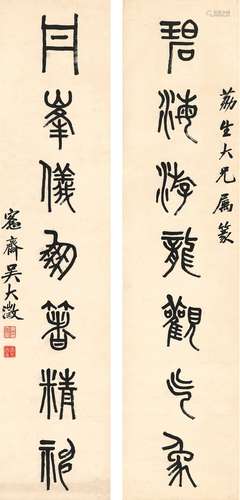 荔生大兄屬篆
碧海游龍觀气象
丹峯儀鳳箸精神
愙齋吳大澂